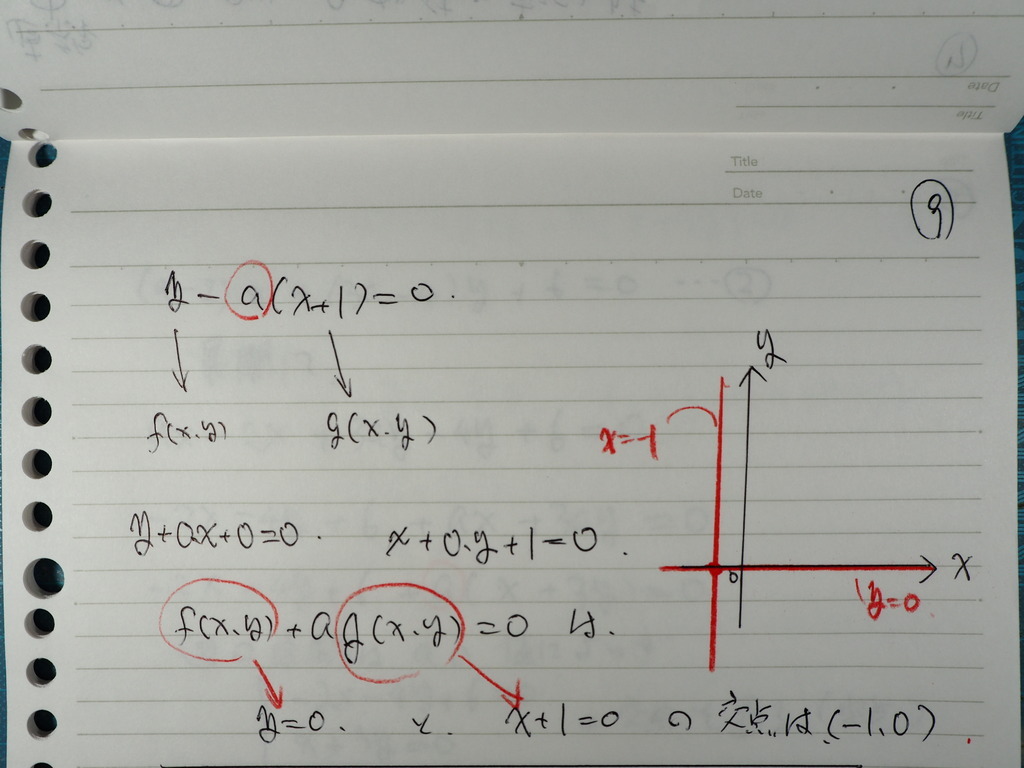 Title
Date
⑨
y - a(x+1) = 0.
f(x.y) g(x.y)
y
x=-1
y+0x+0=0. x+0.y+1=0.
0 x
y=0
f(x.y)+ag(x.y)=0 は.
y=0. と. x+1=0 の 交点は(-1.0).